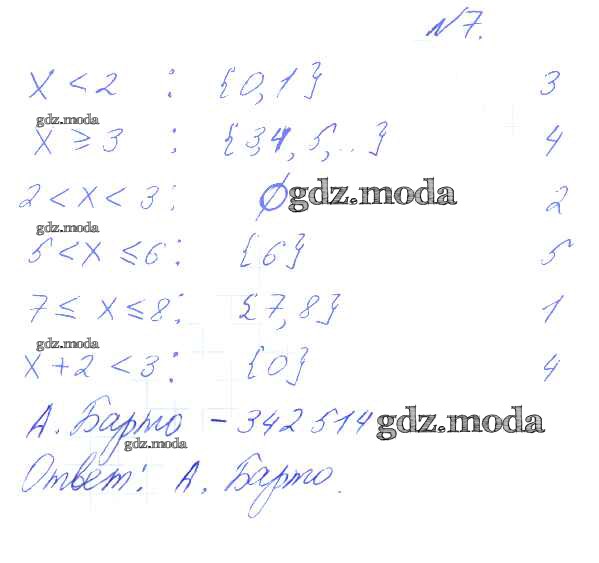 N7.
x < 2 : {0,1} 3
gdz.moda
x ≥ 3 ; {3,4, 5, ..} 4
2 < x < 3 : ∅ gdz.moda 2
gdz.moda
5 < x ≤ 6 : {6} 5
7 ≤ x ≤ 8 : {7, 8} 1
gdz.moda
x + 2 < 3 : {0} 4
А. Барто – 342 514 gdz.moda
gdz.moda
Ответ: А. Барто.